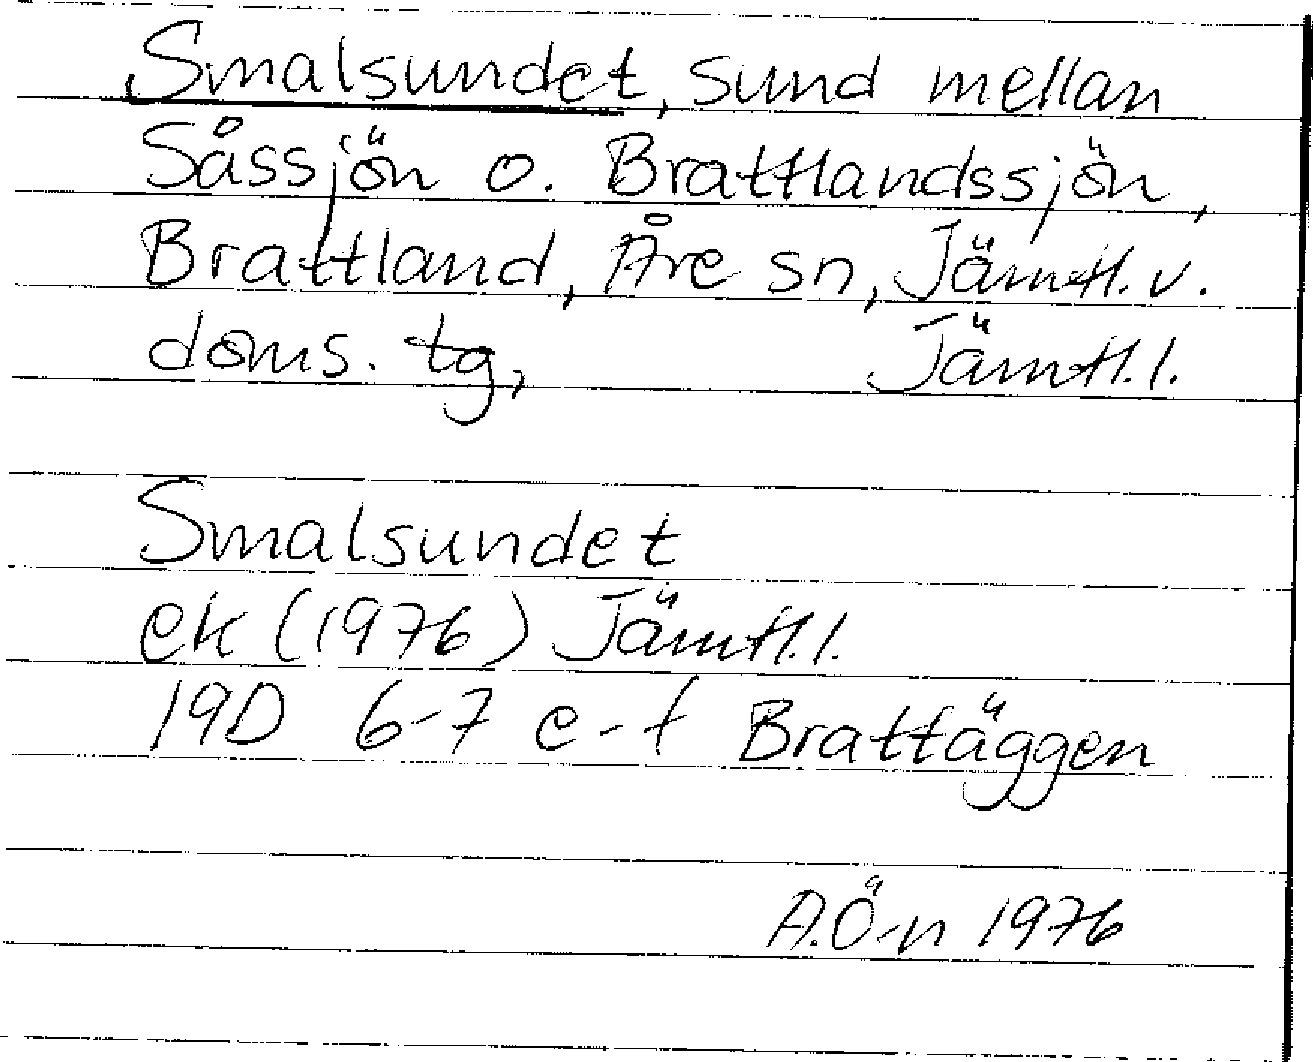 Smalsundet, sund mellan
Såssjön o. Brattlandssjön,
Brattland, Åre sn, Jämtl. v.
doms. tg, Jämtl. l.
Smalsundet
ek (1976) Jämtl. l.
19D 6-7 e-f Brattäggen
A.Ö-n 1976